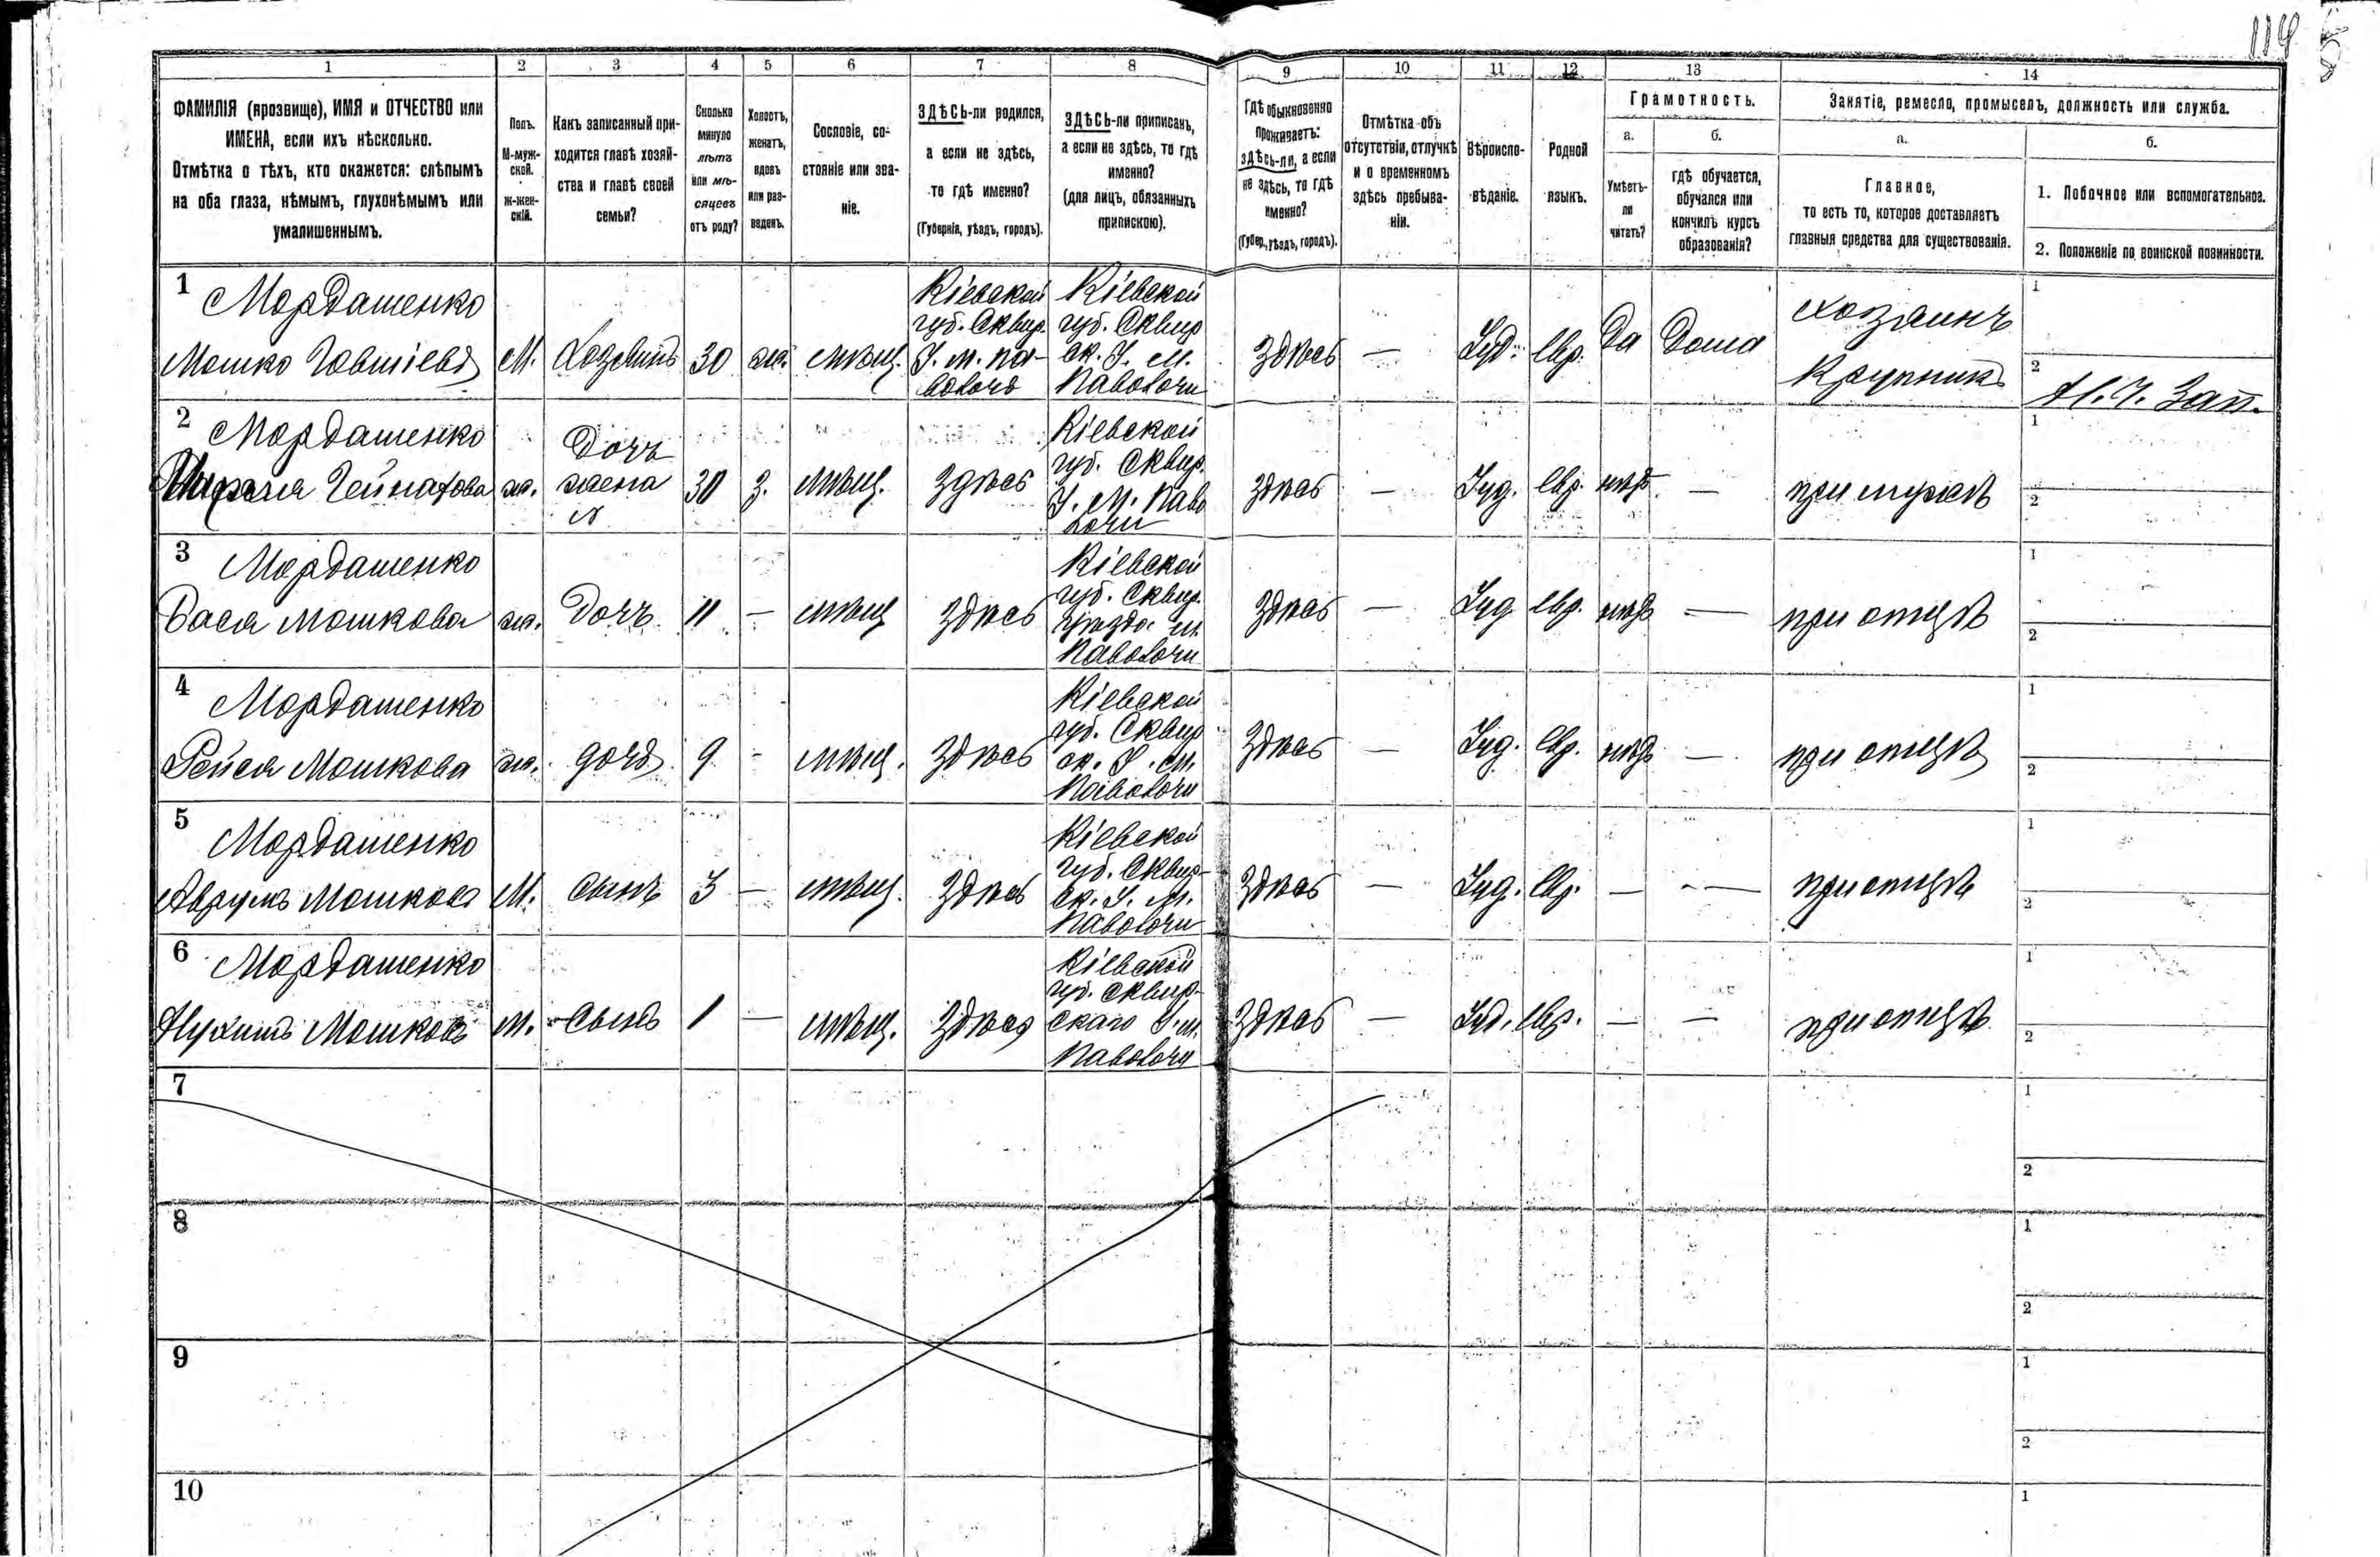 119
1 2 3 4 5 6 7 8 9 10 11 12 13 14
ФАМИЛІЯ (прозвище), ИМЯ и ОТЧЕСТВО или
ИМЕНА, если ихъ нѣсколько.
Отмѣтка о тѣхъ, кто окажется: слѣпымъ
на оба глаза, нѣмымъ, глухонѣмымъ или
умалишеннымъ.
Полъ.
М-муж-
ской.
ж-жен-
скій.
Какъ записанный при-
ходится главѣ хозяй-
ства и главѣ своей
семьи?
Сколько
минуло
лѣтъ
или мѣ-
сяцевъ
отъ роду?
Холостъ,
женатъ,
вдовъ
или раз-
веденъ.
Сословіе, со-
стояніе или зва-
ніе.
ЗДѢСЬ-ли родился,
а если не здѣсь,
то гдѣ именно?
(Губернія, уѣздъ, городъ).
ЗДѢСЬ-ли приписанъ,
а если не здѣсь, то гдѣ
именно?
(для лицъ, обязанныхъ
припискою).
Гдѣ обыкновенно
проживаетъ:
здѣсь-ли, а если
не здѣсь, то гдѣ
именно?
(Губер., уѣздъ, городъ).
Отмѣтка объ
отсутствіи, отлучкѣ
и о временномъ
здѣсь пребыва-
ніи.
Вѣроиспо-
вѣданіе.
Родной
языкъ.
Грамотность.
а.
Умѣетъ-
ли
читать?
б.
гдѣ обучается,
обучался или
кончилъ курсъ
образованія?
Занятіе, ремесло, промыселъ, должность или служба.
а.
Главное,
то есть то, которое доставляетъ
главныя средства для существованія.
б.
1. Побочное или вспомогательное.
2. Положеніе по воинской повинности.
1 Мордашенко
Мошко Говшіевъ
М.
Хозяинъ
30
жа.
мѣщ.
Кіевской
губ. Сквир.
У. м. Па-
волочь
Кіевской
губ. Сквир
ск. У. м.
Паволочи
Здѣсь
—
Іуд.
Евр.
Да
Дома
Хозяинъ
Крупникъ
1
2
Н. Ч. Зап.
2 Мордашенко
ж.
Дочь
жена
30
З.
мѣщ.
Здѣсь
Кіевской
губ. Сквир.
У. М. Паво
лочи
здѣсь
—
Іуд.
Евр.
нѣтъ
—
при мужѣ
1
2
3 Мордашенко
Бася Мошкова
ж.
Дочь
11
—
мѣщ
Здѣсь
Кіевской
губ. Сквир.
уѣзда м.
Паволочи
Здѣсь
—
Іуд.
Евр.
нѣтъ
—
при отцѣ
1
2
4 Мордашенко
Рейся Мошкова
ж.
дочь
9
-
мѣщ.
Здѣсь
Кіевской
губ. Сквир
ск. У. м.
Паволочи
Здѣсь
—
Іуд.
Евр.
нѣтъ
—
при отцѣ
1
2
5 Мордашенко
Аврумъ Мошковъ
М.
сынъ
3
—
мѣщ.
Здѣсь
Кіевской
губ. Сквир-
ск. У. М.
Паволочи
Здѣсь
—
Іуд.
Евр.
—
—
при отцѣ
1
2
6 Мордашенко
Нухимъ Мошковъ
м.
Сынъ
1
—
мѣщ.
Здѣсь
Кіевской
губ. Сквир-
скаго У. м.
Паволочи
Здѣсь
—
Іуд.
Евр.
—
—
при отцѣ
1
2
7
1
2
8
1
2
9
1
2
10
1